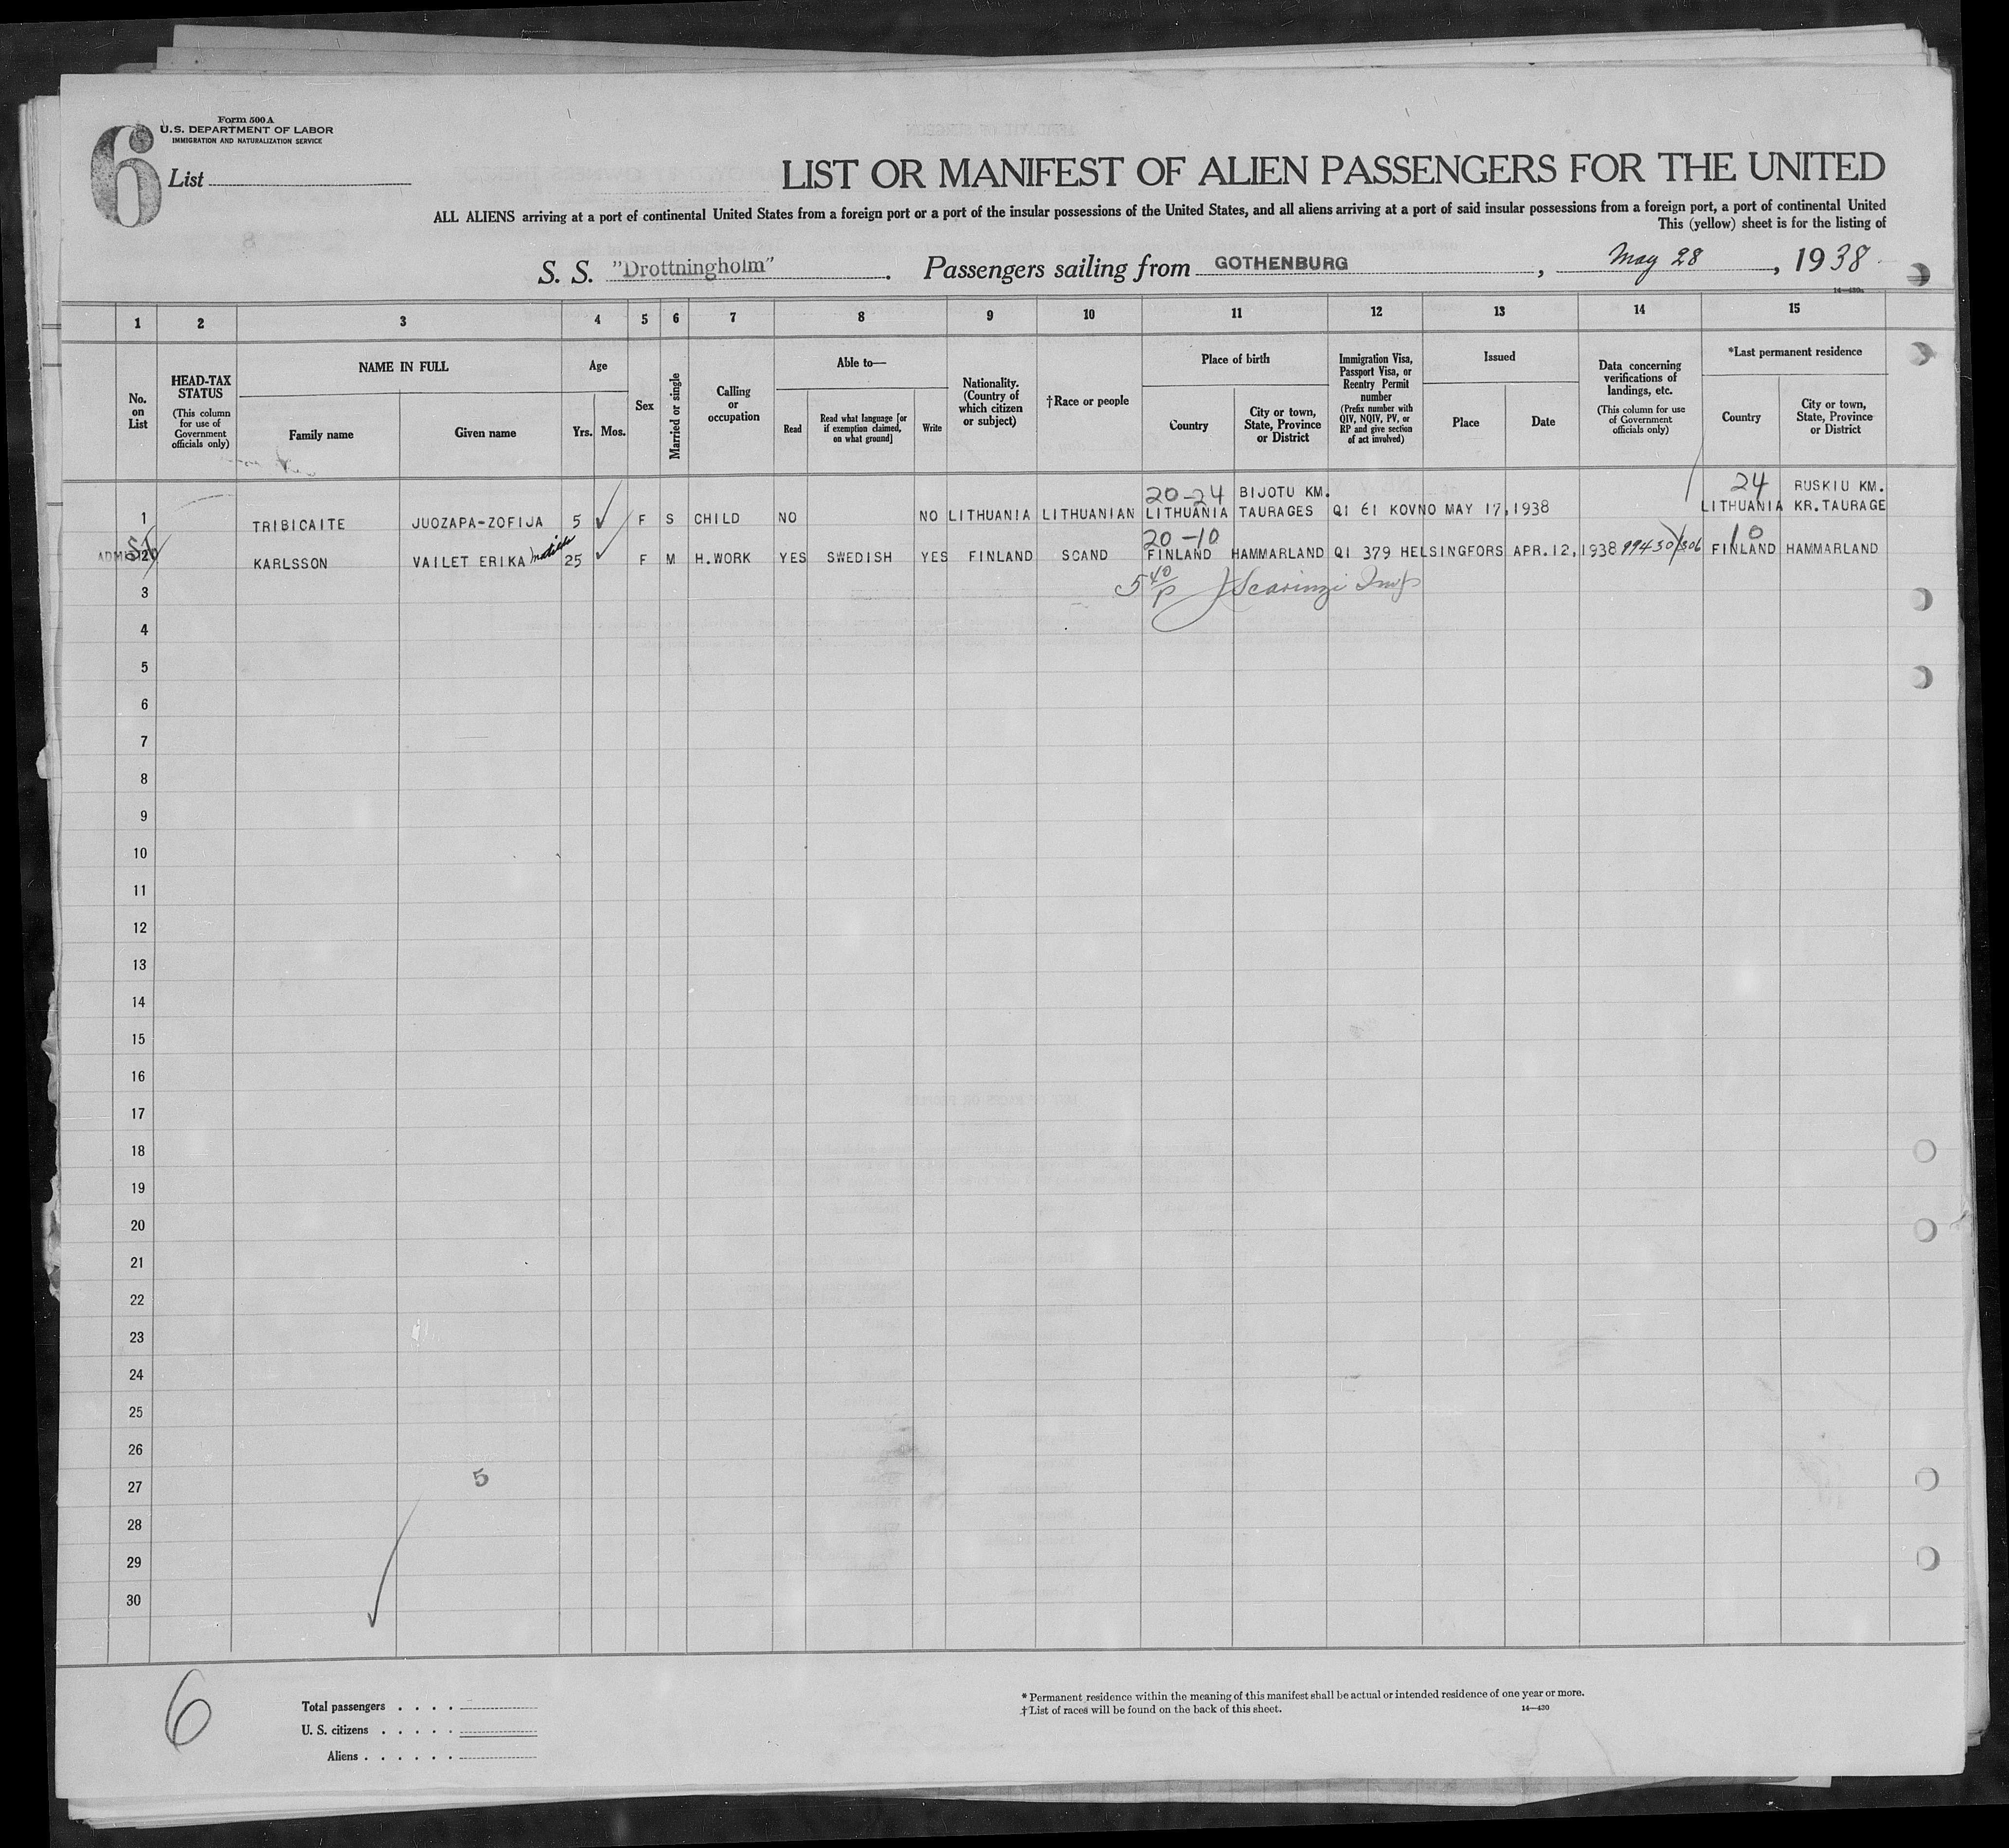 6
Form 500 A
U.S. DEPARTMENT OF LABOR
IMMIGRATION AND NATURALIZATION SERVICE
List
LIST OR MANIFEST OF ALIEN PASSENGERS FOR THE UNITED
ALL ALIENS arriving at a port of continental United States from a foreign port or a port of the insular possessions of the United States, and all aliens arriving at a port of said insular possessions from a foreign port, a port of continental United
This (yellow) sheet is for the listing of
S. S. "Drottningholm". Passengers sailing from GOTHENBURG, May 28, 1938
14—430a
1 2 3 4 5 6 7 8 9 10 11 12 13 14 15
No. on List
HEAD-TAX STATUS
(This column for use of Government officials only)
NAME IN FULL
Family name
Given name
Age
Yrs. Mos.
Sex
Married or single
Calling or occupation
Able to—
Read
Read what language [or if exemption claimed, on what ground]
Write
Nationality. (Country of which citizen or subject)
†Race or people
Place of birth
Country
City or town, State, Province or District
Immigration Visa, Passport Visa, or Reentry Permit number
(Prefix number with QIV, NQIV, PV, or RP and give section of act involved)
Issued
Place
Date
Data concerning verifications of landings, etc.
(This column for use of Government officials only)
*Last permanent residence
Country
City or town, State, Province or District
20-24 BIJOTU KM. 24 RUSKIU KM.
1 TRIBICAITE JUOZAPA-ZOFIJA 5 F S CHILD NO NO LITHUANIA LITHUANIAN LITHUANIA TAURAGES QI 61 KOVNO MAY 17,1938 LITHUANIA KR.TAURAGE
20-10 10
ADMITTED 2 KARLSSON VAILET ERIKA Matilda 25 F M H.WORK YES SWEDISH YES FINLAND SCAND FINLAND HAMMARLAND QI 379 HELSINGFORS APR.12,1938 FINLAND HAMMARLAND
3 5 40/P J Scarinzi Insp
4
5
6
7
8
9
10
11
12
13
14
15
16
17
18
19
20
21
22
23
24
25
26
27 5
28
29
30
6
Total passengers . . . .
U. S. citizens . . . . .
Aliens . . . . . .
* Permanent residence within the meaning of this manifest shall be actual or intended residence of one year or more.
† List of races will be found on the back of this sheet.
14—430